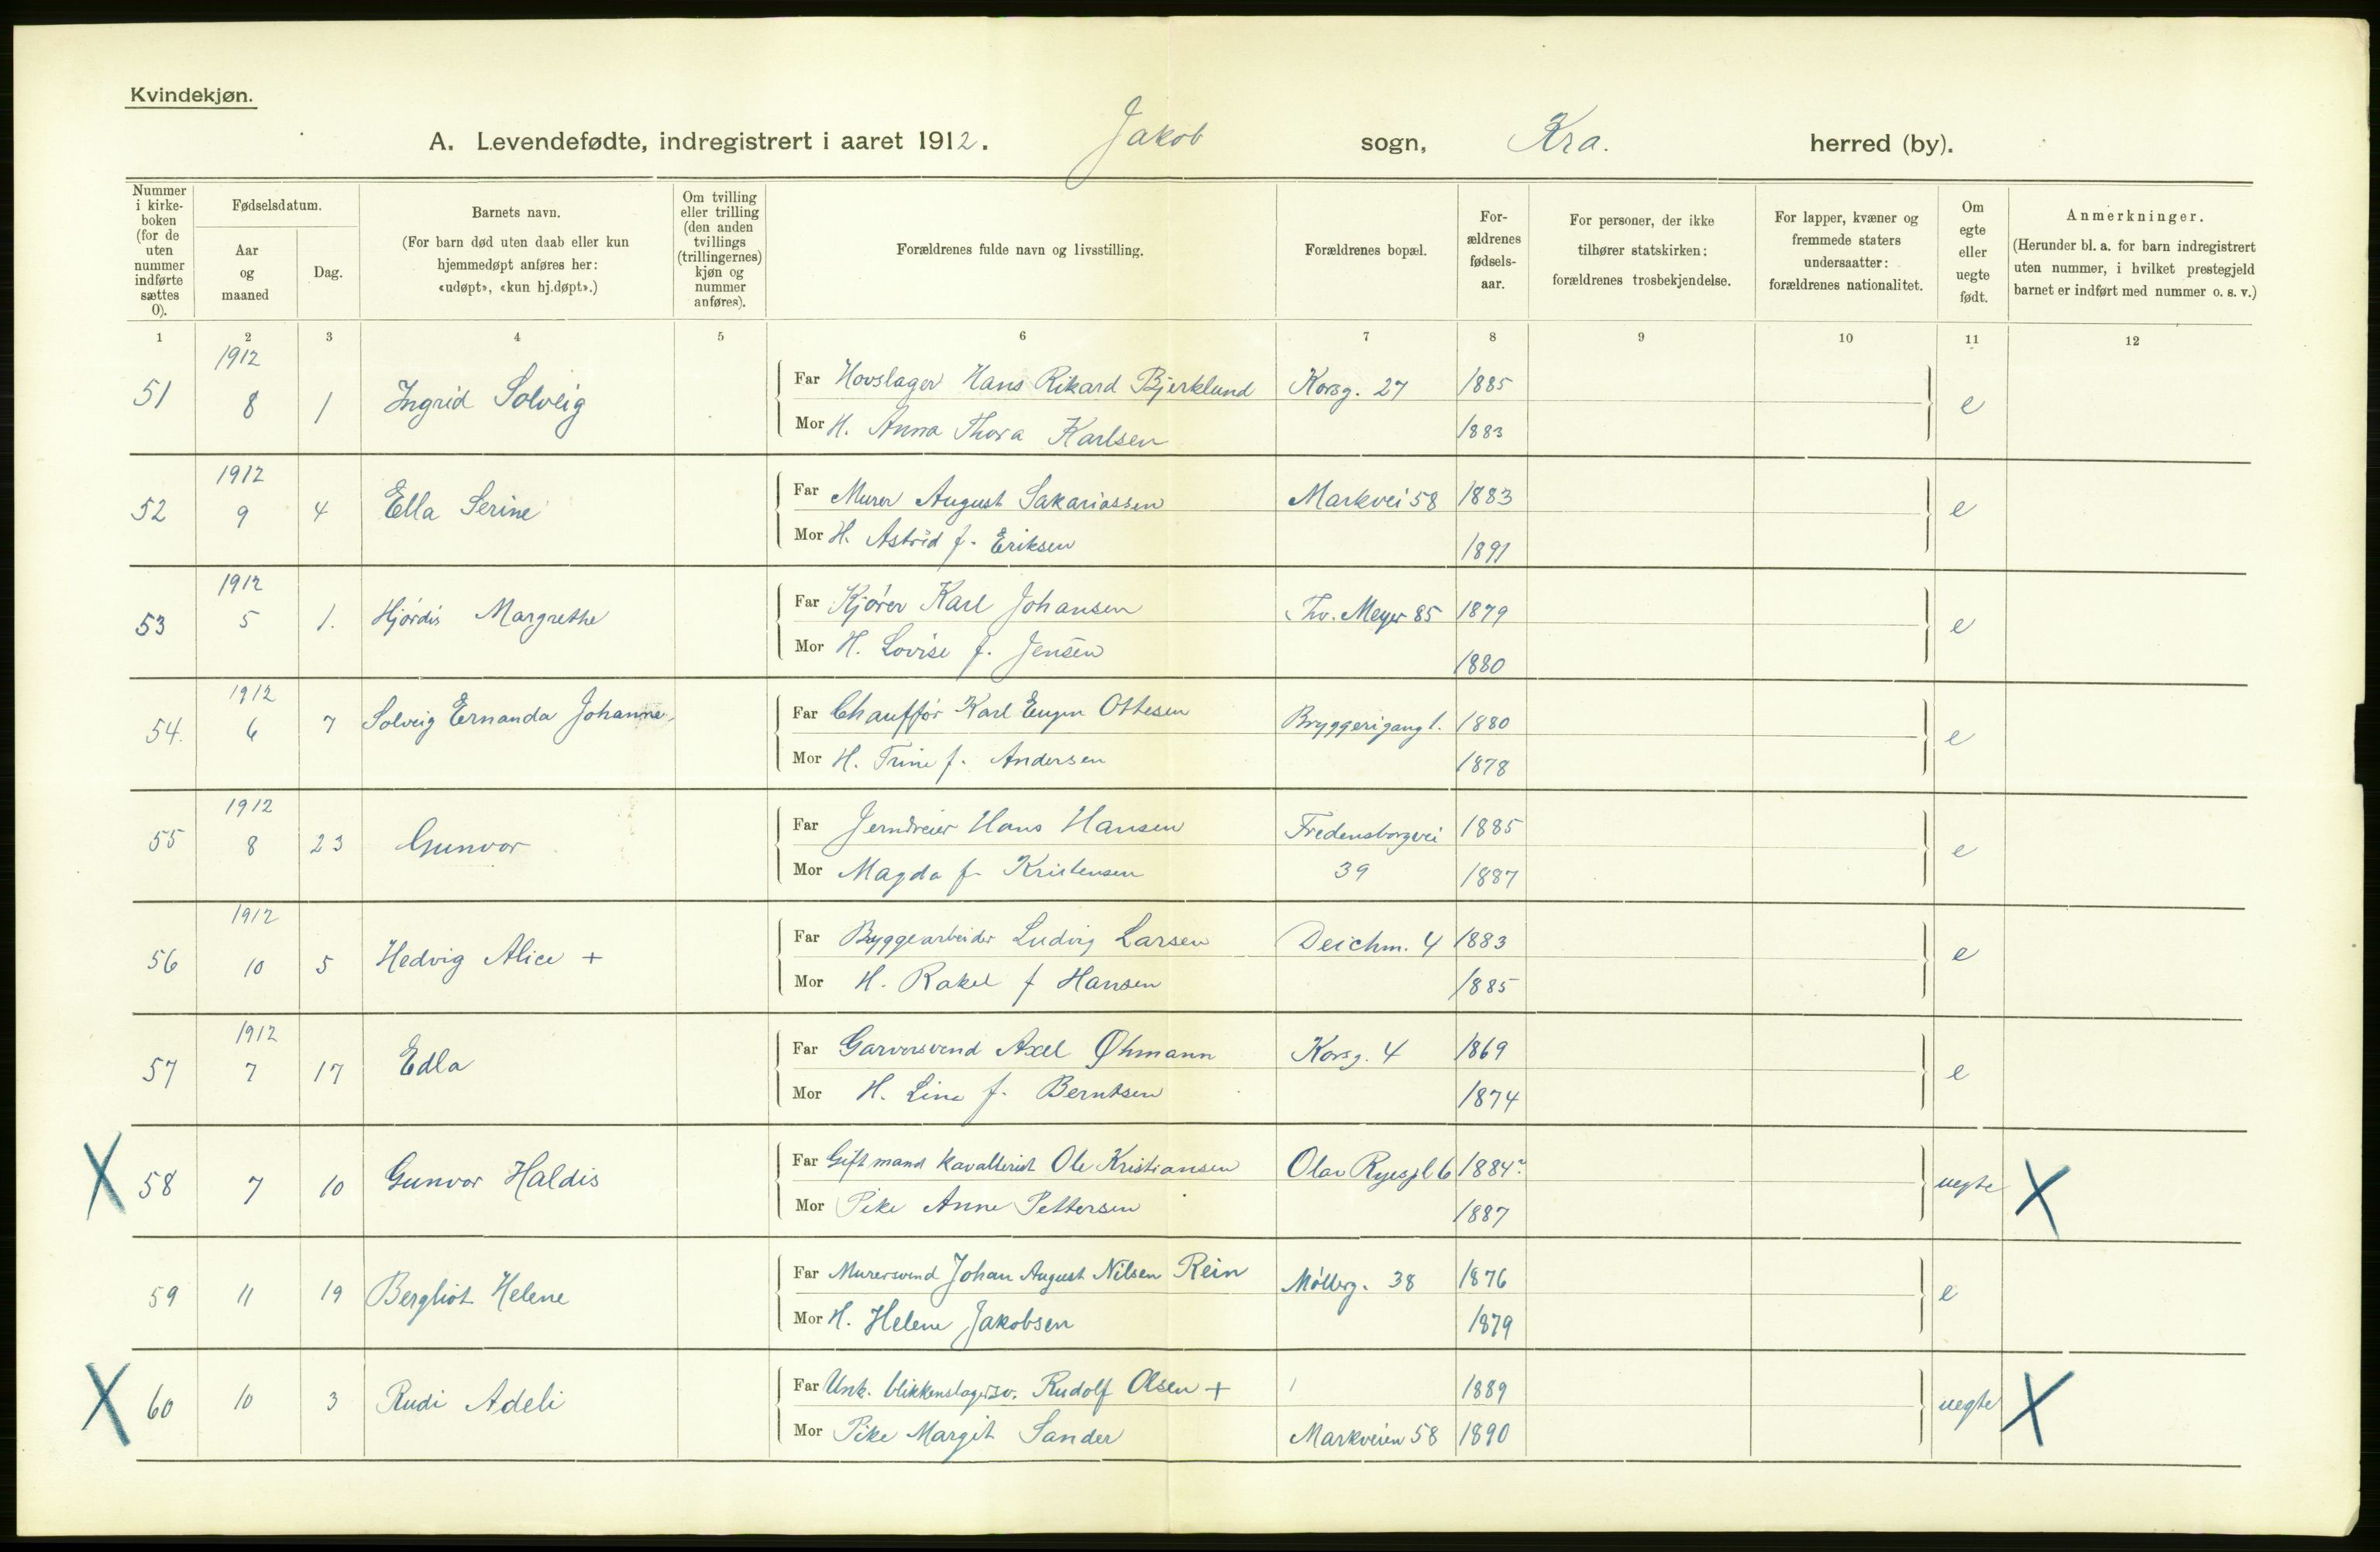 Kvindekjøn.
A. Levendefødte, indregistrert i aaret 1912. Jakob sogn, Kra. herred (by).
Nummer i kirke-boken (for de uten nummer indførte sættes 0).
Fødselsdatum.
Aar og maaned
Dag.
Barnets navn.
(For barn død uten daab eller kun hjemmedøpt anføres her: «udøpt», «kun hj.døpt».)
Om tvilling eller trilling (den anden tvillings (trillingernes) kjøn og nummer anføres).
Forældrenes fulde navn og livsstilling.
Forældrenes bopæl.
For-ældrenes fødsels-aar.
For personer, der ikke tilhører statskirken: forældrenes trosbekjendelse.
For lapper, kvæner og fremmede staters undersaatter: forældrenes nationalitet.
Om egte eller uegte født.
Anmerkninger.
(Herunder bl. a. for barn indregistrert uten nummer, i hvilket prestegjeld barnet er indført med nummer o. s. v.)
1 2 3 4 5 6 7 8 9 10 11 12
1912
51 8 1 Ingrid Solveig Far Hovslager Hans Rikard Bjerklund Korsg. 27 1885 e
Mor H. Anna Thora Karlsen 1883
1912
52 9 4 Ella Serine Far Murer August Sakariassen Markvei 58 1883 e
Mor H. Astrid f. Eriksen 1891
1912
53 5 1. Hjørdis Margrethe Far Kjører Karl Johansen Thv. Meyer 85 1879 e
Mor H. Lovise f. Jensen 1880
1912
54. 6 7 Solveig Ernanda Johanne Far Chauffør Karl Eugen Ottesen Bryggerigang 1. 1880 e
Mor H. Trine f. Andersen 1878
1912
55 8 23 Gunvor Far Jerndreier Hans Hansen Fredensborgvei 1885 e
Mor Magda f. Kristensen 39 1887
1912
56 10 5 Hedvig Alice + Far Bryggearbeider Ludvig Larsen Deichm. 4 1883 e
Mor H. Rakel f Hansen 1885
1912
57 7 17 Edla Far Garversvend Axel Øhmann Korsg. 4 1869 e
Mor H. Lina f. Berntsen 1874
X 58 7 10 Gunvor Haldis Far Gift mand kavallerist Ole Kristiansen Olav Ryespl 6 1884? uegte X
Mor Pike Anne Pettersen 1887
59 11 19 Bergliot Helene Far Murersvend Johan August Nilsen Rein Møllerg. 38 1876 e
Mor H. Helene Jakobsen 1879
X 60 10 3 Rudi Adeli Far Unk. blikkenslagersv. Rudolf Olsen + 1889 uegte X
Mor Pike Margit Sander Markveien 58 1890